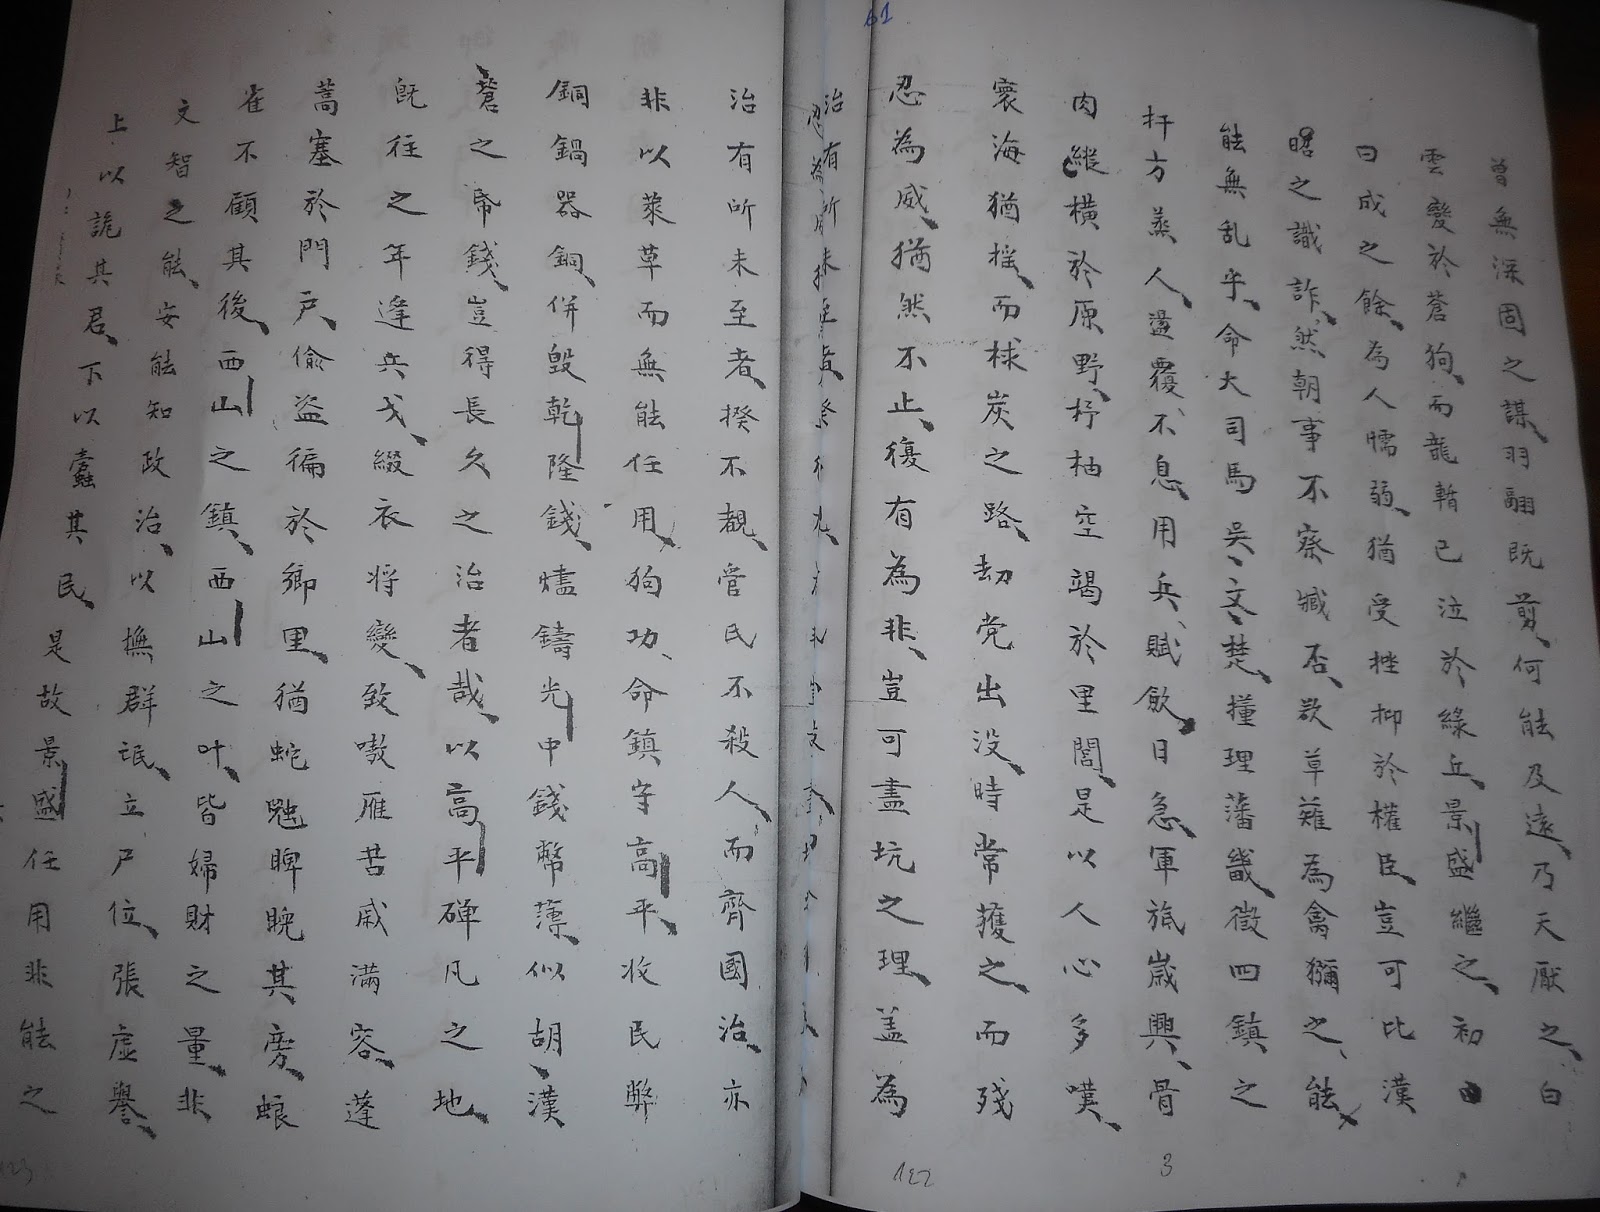 61
曾無深固之謀羽翮既剪何能及遠乃天厭之白
雲變於蒼狗而龍輴已泣於綠丘景盛繼之初
日成之餘為人懦弱猶受挫抑於權臣豈可比漢
昭之識詐然朝事不察臧否欲草薙為禽獮之能
能無乱乎命大司馬吳文楚撞理藩畿徵四鎮之
扞方蒸人盪覆不息用兵賦斂日急軍旅歲興骨
肉縱橫於原野杼柚空竭於里閭是以人心多嘆
寰海猶搖而梂炭之路劫党出没時常獲之而殘
忍為威猶然不止復有為非豈可盡坑之理盖為
治有所未至者揆不覩管民不殺人而齊國治亦
非以菉草而無能任用狗功命鎮守高平收民弊
銅鍋器銅併毀乾隆錢爐鑄光中錢幣薄似胡漢
蒼之帋錢豈得長久之治者哉以高平碑凡之地
既往之年逢兵戈綴衣将變致嗷雁苦戚滿容蓬
蒿塞於門戸偷盗徧於鄉里猶蛇虺睥睨其旁蜋
雀不顧其後西山之鎮西山之叶皆婦財之量非
文智之能安能知政治以撫群氓立尸位張虚譽
上以詭其君下以蠹其民是故景盛任用非能之
122
3
123